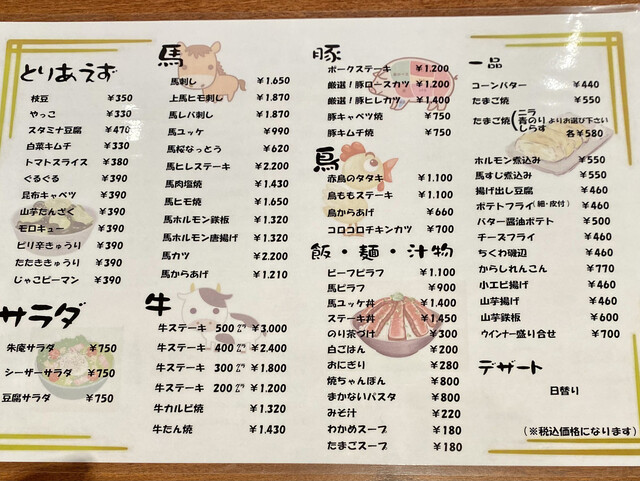 とりあえず
枝豆 ¥350
やっこ ¥330
スタミナ豆腐 ¥470
白菜キムチ ¥330
トマトスライス ¥380
ぐるぐる ¥390
昆布キャベツ ¥390
山芋たんざく ¥390
モロキュー ¥390
ピリ辛きゅうり ¥390
たたききゅうり ¥390
じゃこピーマン ¥390
サラダ
朱庵サラダ ¥750
シーザーサラダ ¥750
豆腐サラダ ¥750
馬
馬刺し ¥1.650
上馬ヒモ刺し ¥1.870
馬レバ刺し ¥1.870
馬ユッケ ¥990
馬桜なっとう ¥620
馬ヒレステーキ ¥2.200
馬肉塩焼 ¥1.430
馬ヒモ焼 ¥1.650
馬ホルモン鉄板 ¥1.320
馬ホルモン唐揚げ ¥1.320
馬カツ ¥2.200
馬からあげ ¥1.210
牛
牛ステーキ 500㌘ ¥3,000
牛ステーキ 400㌘ ¥2.400
牛ステーキ 300㌘ ¥1.800
牛ステーキ 200㌘ ¥1.200
牛カルビ焼 ¥1.320
牛たん焼 ¥1.430
豚
ポークステーキ ¥1.200
厳選！豚ロースカツ ¥1.200
厳選！豚ヒレカツ ¥1.400
豚キャベツ焼 ¥750
豚キムチ焼 ¥750
鳥
赤鳥のタタキ ¥1.100
鳥ももステーキ ¥1.100
鳥からあげ ¥660
コロコロチキンカツ ¥700
飯・麺・汁物
ビーフピラフ ¥1.100
馬ピラフ ¥900
馬ユッケ丼 ¥1.400
ステーキ丼 ¥1.450
のり茶づけ ¥300
白ごはん ¥200
おにぎり ¥280
焼ちゃんぽん ¥800
まかないパスタ ¥800
みそ汁 ¥220
わかめスープ ¥180
たまごスープ ¥180
一品
コーンバター ¥440
たまご焼 ¥550
たまご焼(ニラ 青のり しらす よりお選び下さい 各¥580
ホルモン煮込み ¥550
馬すじ煮込み ¥550
揚げ出し豆腐 ¥460
ポテトフライ(細・皮付) ¥460
バター醤油ポテト ¥500
チーズフライ ¥460
ちくわ磯辺 ¥460
からしれんこん ¥770
小エビ揚げ ¥460
山芋揚げ ¥460
山芋鉄板 ¥600
ウインナー盛り合せ ¥700
デザート
日替り
(※税込価格になります)